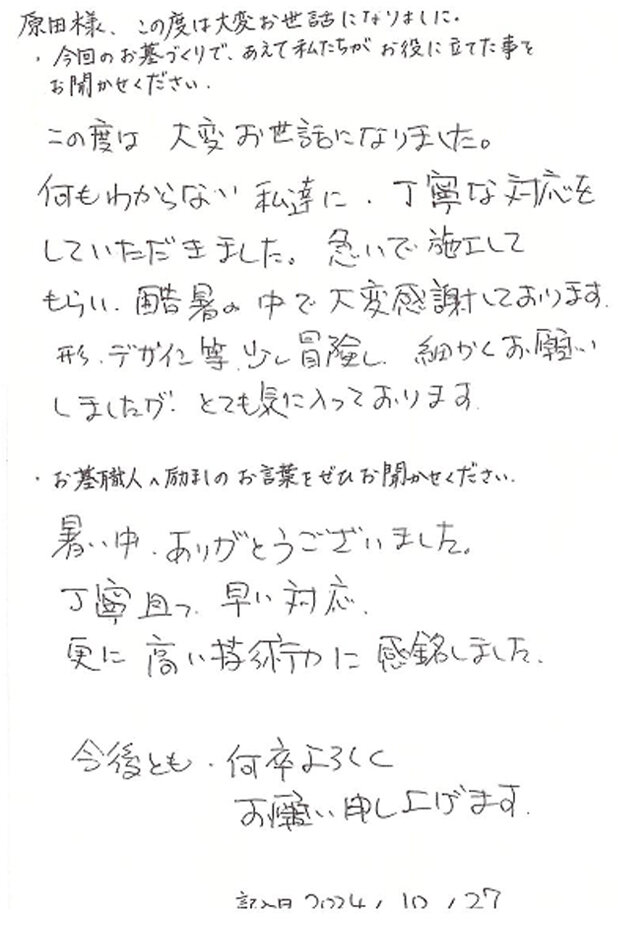 原田様、この度は大変お世話になりました。
・今回のお墓づくりで、あえて私たちがお役に立てた事を
お聞かせください.
この度は 大変お世話になりました。
何もわからない 私達に、丁寧な対応を
していただきました。急いで施工して
もらい、酷暑の中で大変感謝しております.
形、デザイン等、少し冒険し、細かくお願い
しましたが、とても気に入っております.
・お墓職人へ励ましのお言葉をぜひお聞かせください.
暑い中、ありがとうございました。
丁寧且つ、早い対応、
更に高い技術力に感銘しました、
今後とも、何卒よろしく
お願い申し上げます.
記入日 2024/10/27